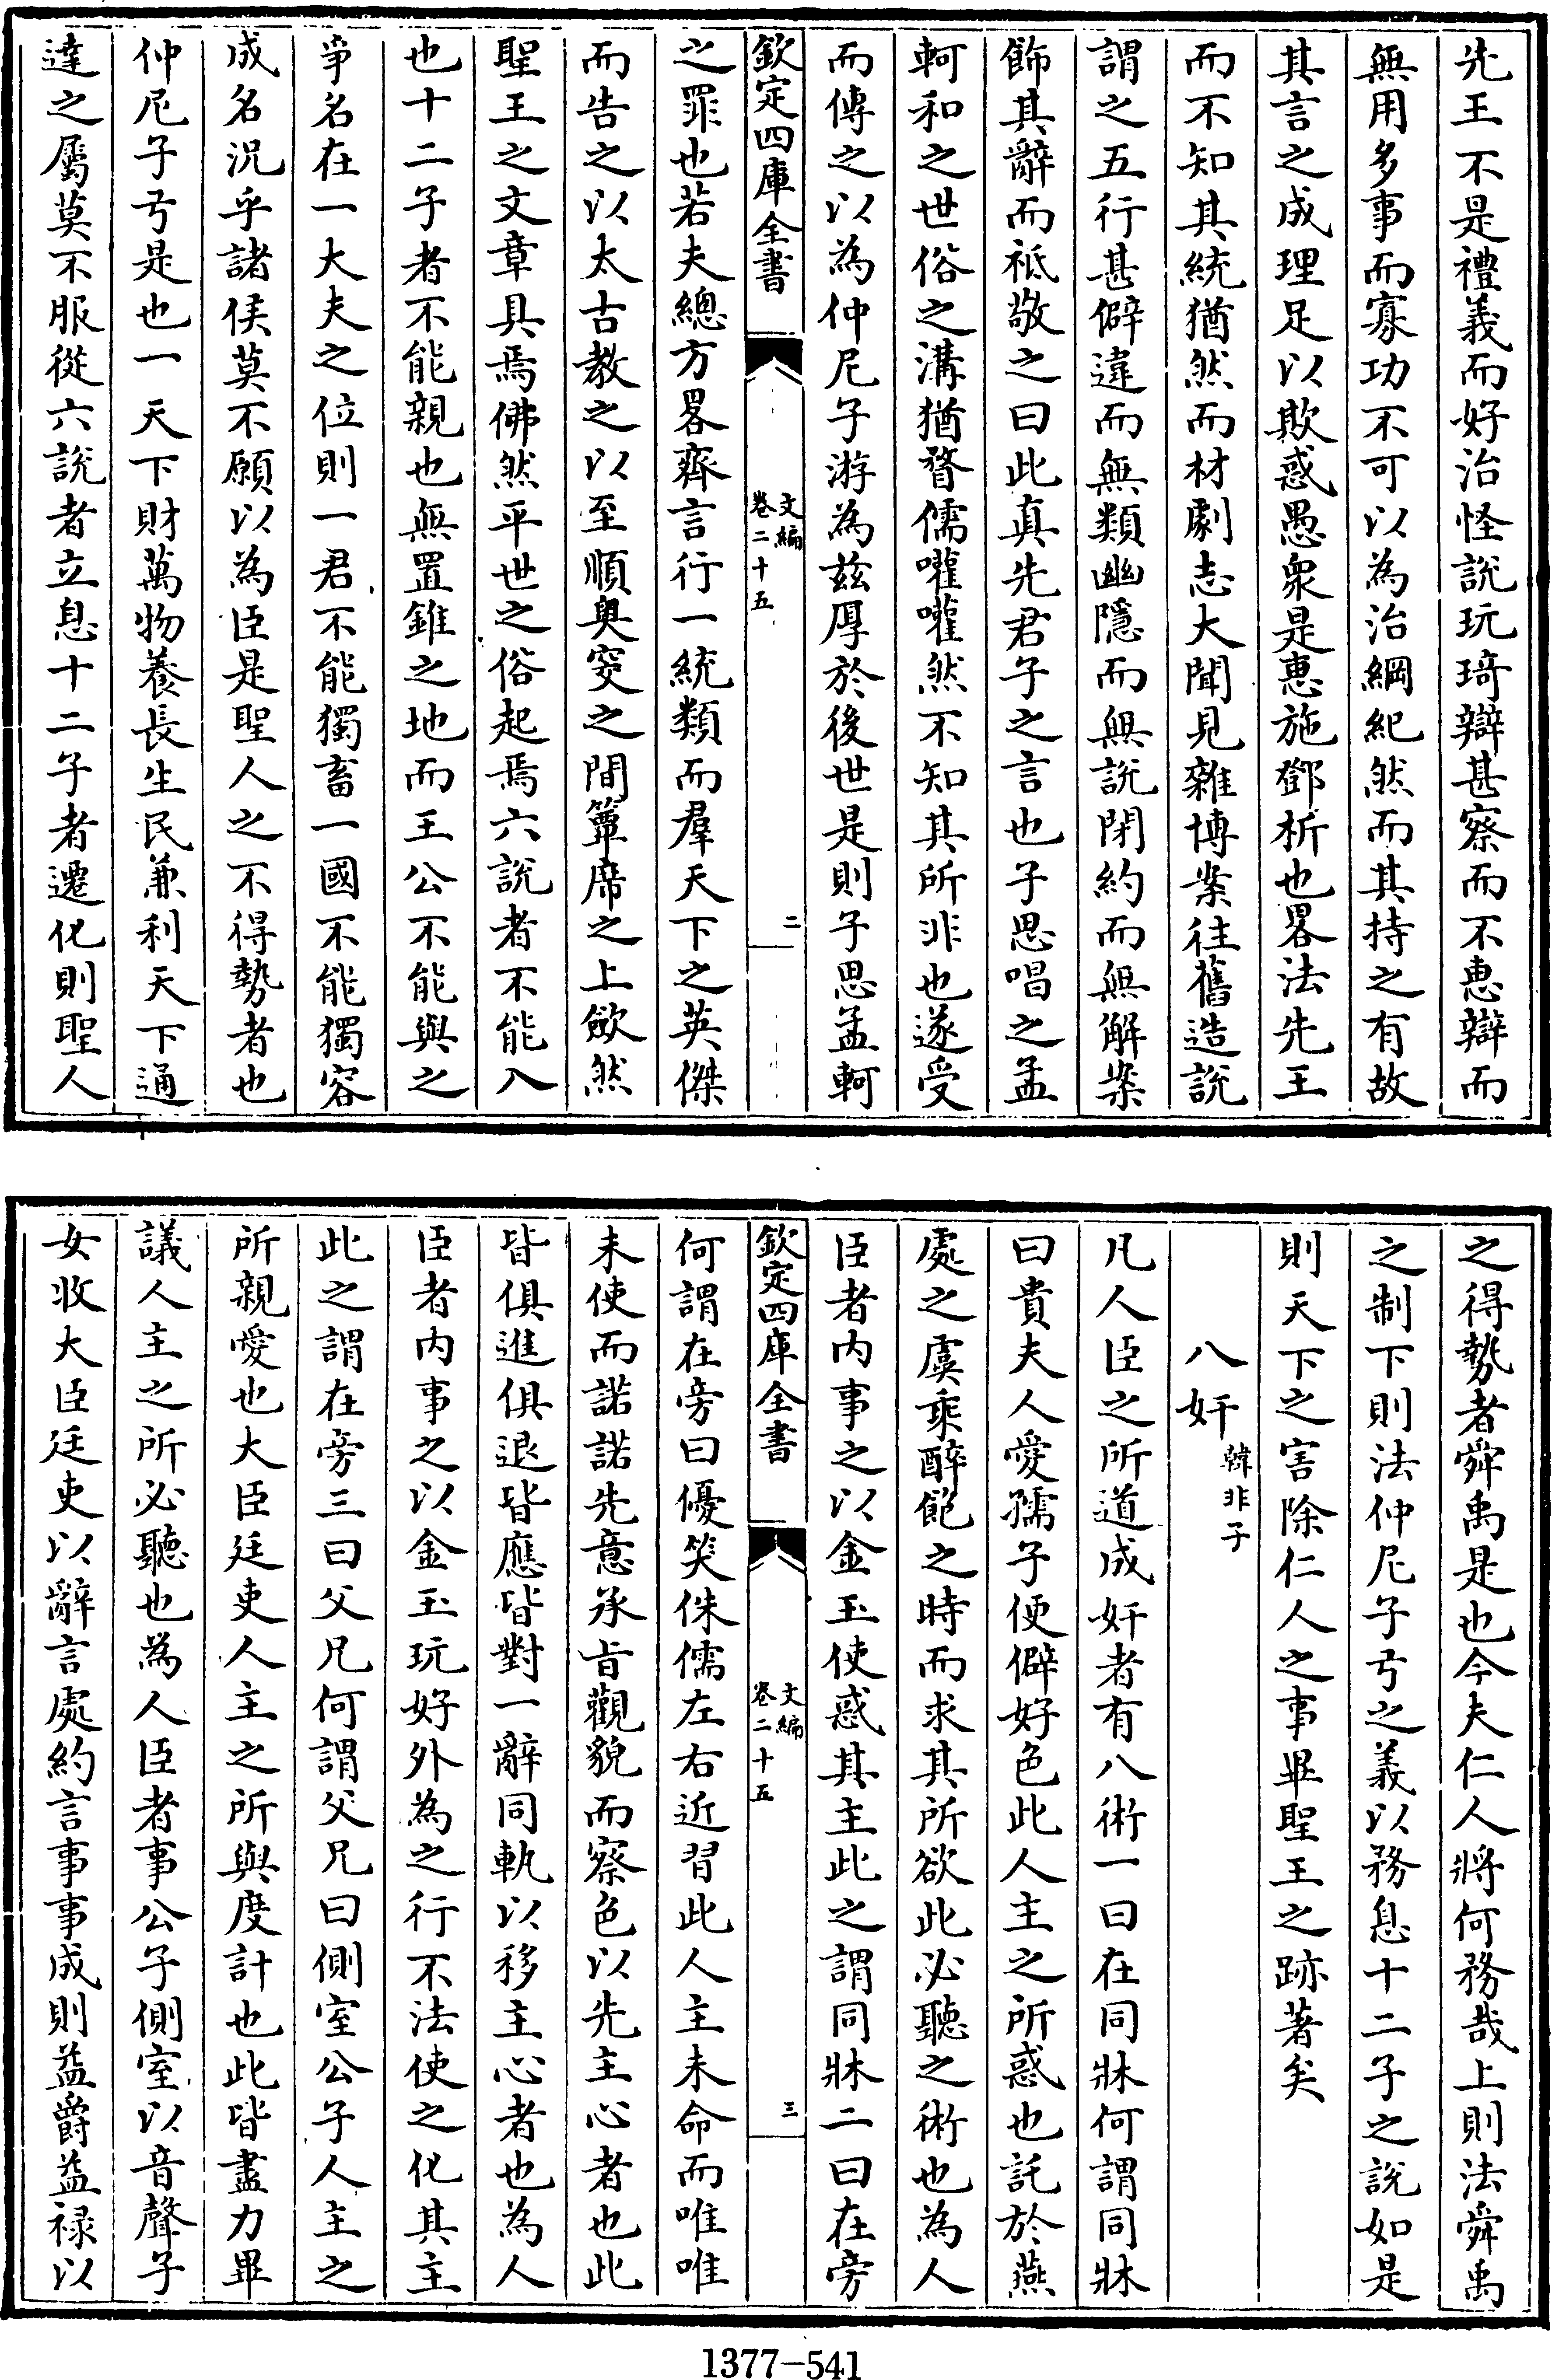 先王不是禮義而好治怪說玩琦辯甚察而不惠辯而
無用多事而寡功不可以為治綱紀然而其持之有故
其言之成理足以欺惑愚衆是惠施鄧析也畧法先王
而不知其統猶然而材劇志大聞見雜博案往舊造說
謂之五行甚僻違而無類幽隱而無說閉約而無解案
飾其辭而祗敬之曰此真先君子之言也子思唱之孟
軻和之世俗之溝猶瞀儒嚾嚾然不知其所非也遂受
而傳之以為仲尼子游為茲厚於後世是則子思孟軻
欽定四庫全書
文編
卷二十五
二
之罪也若夫總方畧齊言行一統類而羣天下之英傑
而告之以太古教之以至順奥窔之間簟席之上歛然
聖王之文章具焉佛然平世之俗起焉六說者不能入
也十二子者不能親也無置錐之地而王公不能與之
爭名在一大夫之位則一君不能獨畜一國不能獨容
成名況乎諸侯莫不願以為臣是聖人之不得勢者也
仲尼子弓是也一天下財萬物養長生民兼利天下通
達之屬莫不服從六說者立息十二子者遷化則聖人
之得勢者舜禹是也今夫仁人將何務哉上則法舜禹
之制下則法仲尼子弓之義以務息十二子之說如是
則天下之害除仁人之事畢聖王之跡著矣
八奸
韓非子
凡人臣之所道成奸者有八術一曰在同牀何謂同牀
曰貴夫人愛孺子便僻好色此人主之所惑也託於燕
處之虞乘醉飽之時而求其所欲此必聽之術也為人
臣者内事之以金玉使惑其主此之謂同牀二曰在旁
欽定四庫全書
文編
卷二十五
三
何謂在旁曰優笑侏儒左右近習此人主未命而唯唯
未使而諾諾先意承旨觀貌而察色以先主心者也此
皆俱進俱退皆應皆對一辭同軌以移主心者也為人
臣者内事之以金玉玩好外為之行不法使之化其主
此之謂在旁三曰父兄何謂父兄曰側室公子人主之
所親愛也大臣廷吏人主之所與度計也此皆盡力畢
議人主之所必聽也為人臣者事公子側室以音聲子
女收大臣廷吏以辭言處約言事事成則益爵益禄以
1377-541